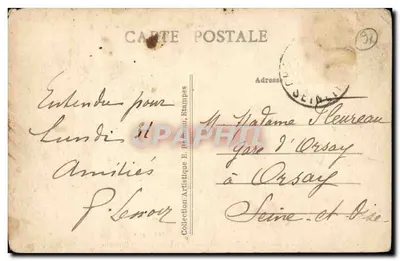 CARTE POSTALE
94
Adresse
Entendu pour
Lundi 31
Amitiés
P. Lenoir
Collection Artistique R. Étampes
M. Madame Fleureau
gare d'Orsay
à Orsay
Seine-et-Oise
CPAPHIL
SEINE